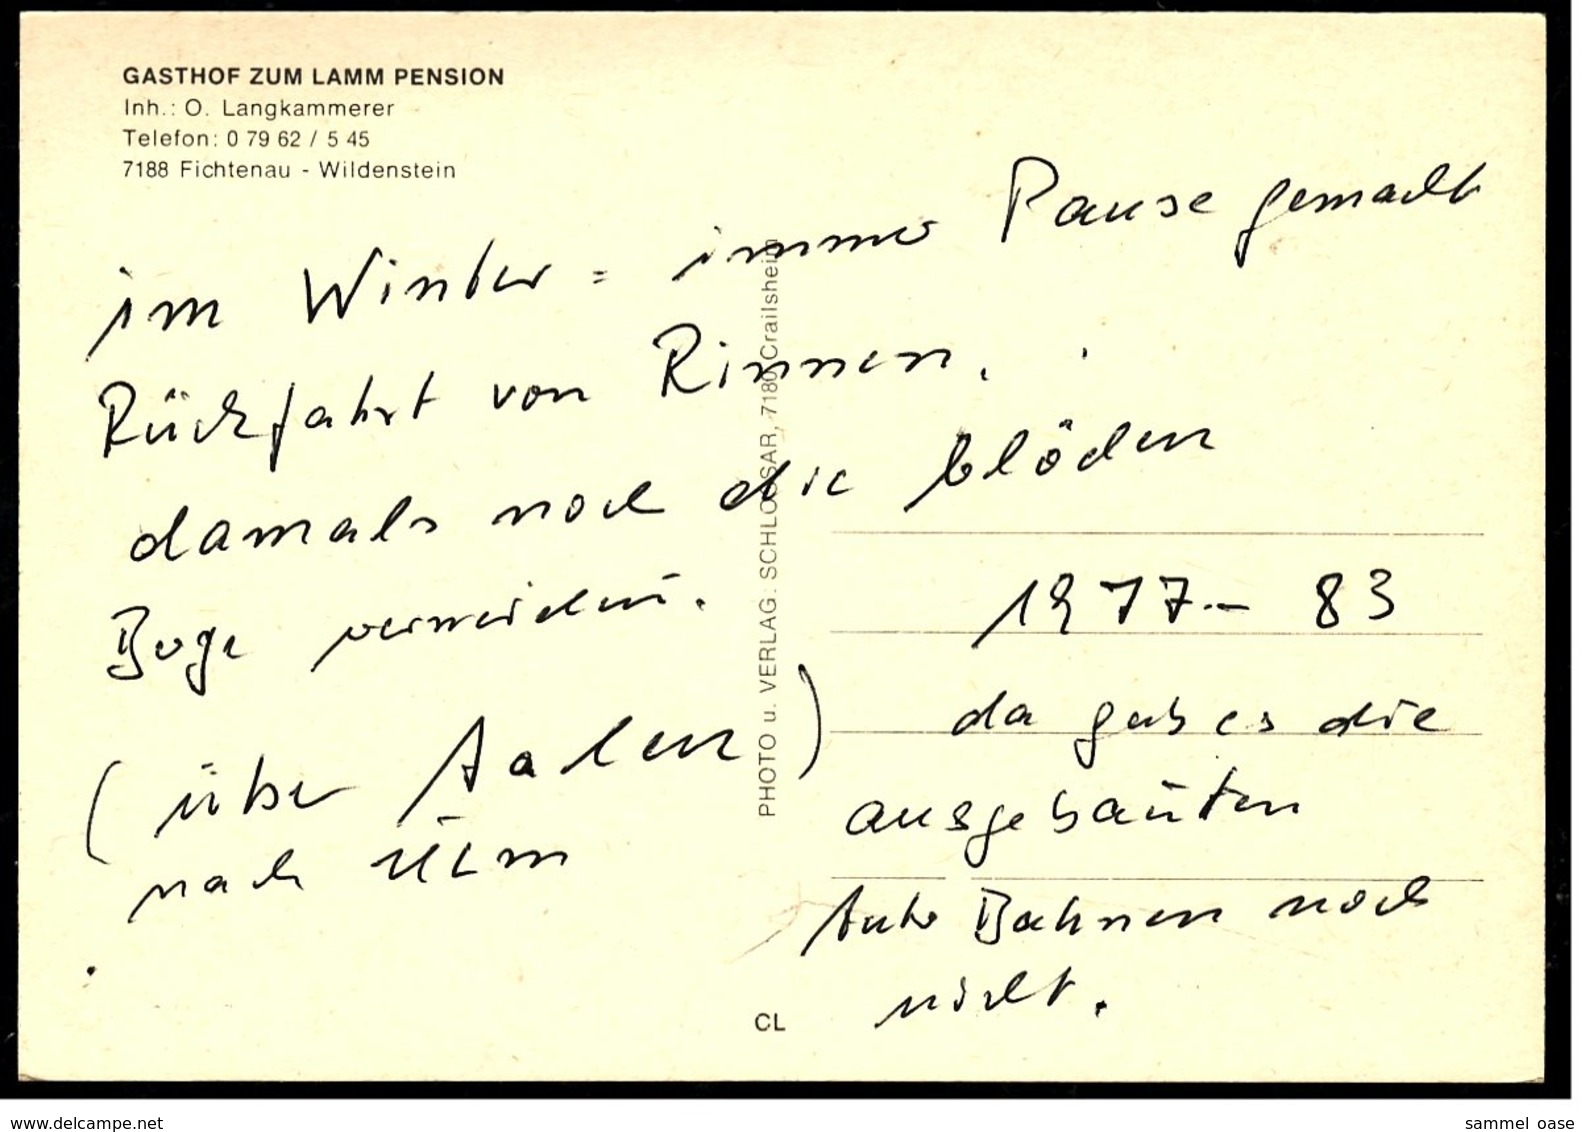 GASTHOF ZUM LAMM PENSION
Inh.: O. Langkammerer
Telefon: 0 79 62 / 5 45
7188 Fichtenau - Wildenstein
im Winter = immer Pause gemacht
Rückfahrt von Rinnen.
damals noch die blöden
Boge vermeiden.
(über Aalen)
nach Ulm
1977 - 83
da gab es die
ausgebauten
Auto Bahnen noch
nicht.
PHOTO u. VERLAG. SCHLOSSAR, 7180 Crailsheim
CL
www.delcampe.net
sammel_oase